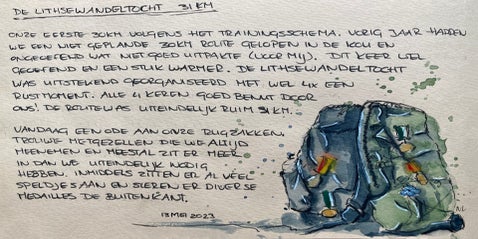 DE LITHSEWANDELTOCHT 31 KM
ONZE EERSTE 30KM VOLGENS HET TRAININGSSCHEMA. VORIG JAAR HADDEN
WE EEN NIET GEPLANDE 30KM ROUTE GELOPEN IN DE KOU EN
ONGEOEFEND WAT NIET GOED UITPAKTE (VOOR MIJ). DIT KEER WEL
GEOEFEND EN EEN STUK WARMER. DE LITHSEWANDELTOCHT
WAS UITSTEKEND GEORGANISEERD MET WEL 4X EEN
RUSTMOMENT. ALLE 4 KEREN GOED BENUT DOOR
ONS! DE ROUTE WAS UITEINDELIJK RUIM 31 KM.
VANDAAG EEN ODE AAN ONZE RUGZAKKEN.
TROUWE METGEZELLEN DIE WE ALTIJD
MEENEMEN EN MEESTAL ZIT ER MEER
IN DAN WE UITEINDELIJK NODIG
HEBBEN. INMIDDELS ZITTEN ER AL VEEL
SPELDJES AAN EN SIEREN ER DIVERSE
MEDAILLES DE BUITENKANT.
13 MEI 2023